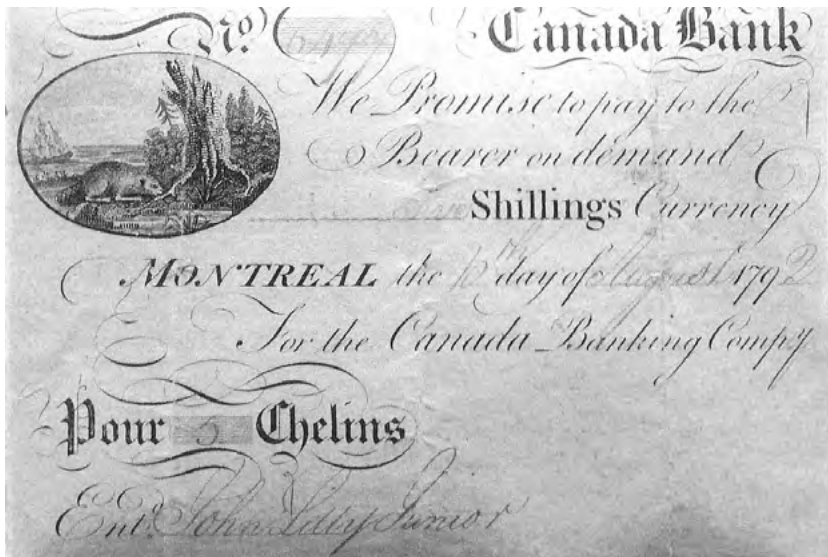 No. Canada Bank
We Promise to pay to the
Bearer on demand
Five Shillings Currency
MONTREAL the 10th day of August 1792
For the Canada Banking Compy
Pour 5 Chelins
Entd. John Junior